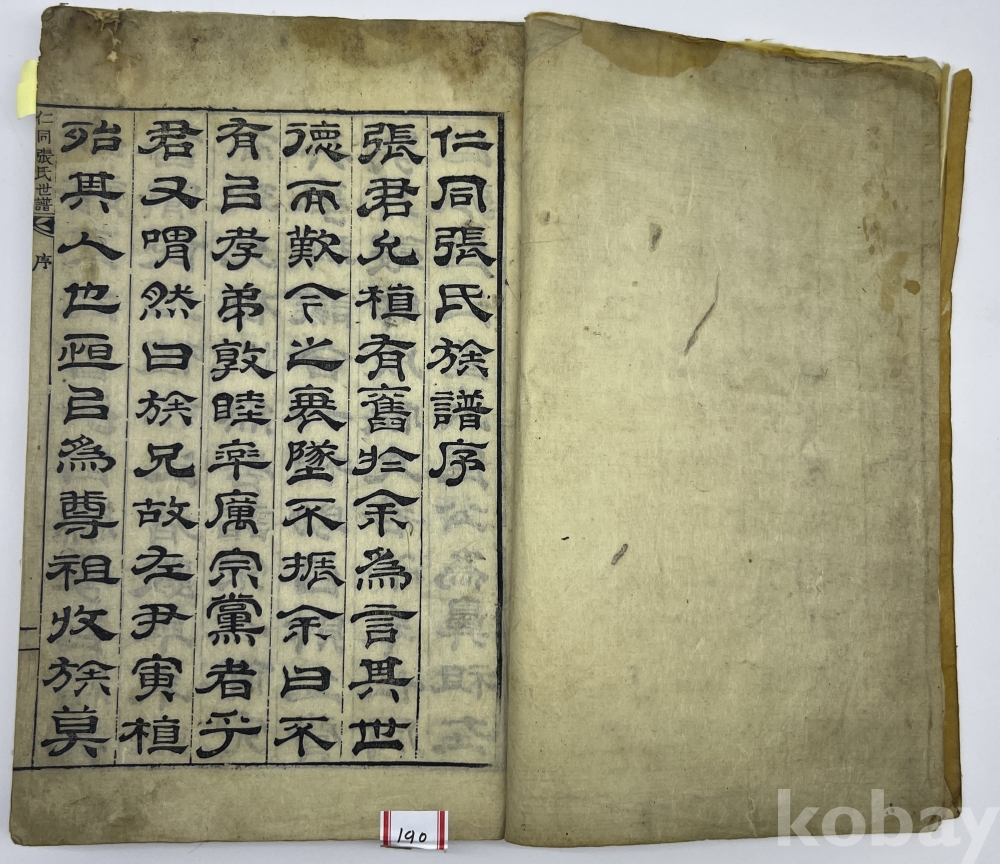 仁同張氏族譜序
張君允植有舊於余為言其世
德而歎今之衰墜不振余曰不
有㠯孝弟敦睦率厲宗黨者乎
君又喟然曰族兄故左尹寅植
殆其人也恒㠯為尊祖收族莫
仁同張氏世譜 序
190
kobay